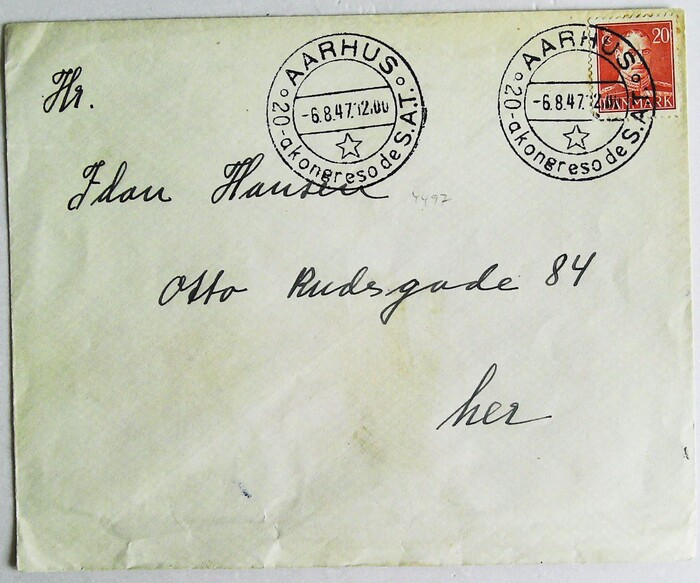 AARHUS
-6.8.47.12.00
20-a kongreso de S.A.T.
AARHUS
-6.8.47.12.00
20-a kongreso de S.A.T.
20
DANMARK
Hr.
Hansen
4497
Otto Rudsgade 84
her